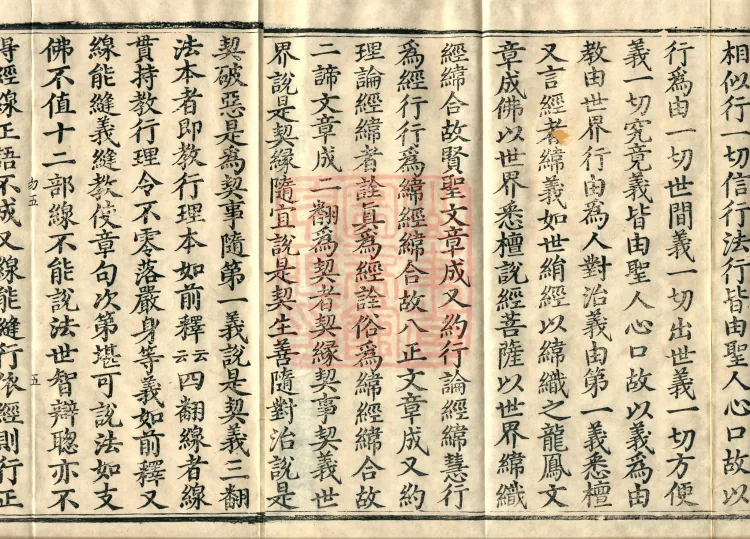 相似行一切信行法行皆由聖人心口故以
行為由一切世間義一切出世義一切方便
義一切究竟義皆由聖人心口故以義為由
教由世界行由為人對治義由第一義悉檀
又言經者緯義如世絹經以緯織之龍鳳文
章成佛以世界悉檀說經菩薩以世界緯織
經緯合故賢聖文章成又約行論經緯慧行
為經行行為緯經緯合故八正文章成又約
理論經緯者詮真為經詮俗為緯經緯合故
二諦文章成二翻為契者契緣契事契義世
界說是契緣隨宜說是契生善隨對治說是
契破惡是為契事隨第一義說是契義三翻
法本者即教行理本如前釋云云四翻線者線
貫持教行理令不零落嚴身等義如前釋又
線能縫義縫教使章句次第堪可說法如支
佛不值十二部線不能說法世智辯聰亦不
得經線正語不成又線能縫行依經則行正
五